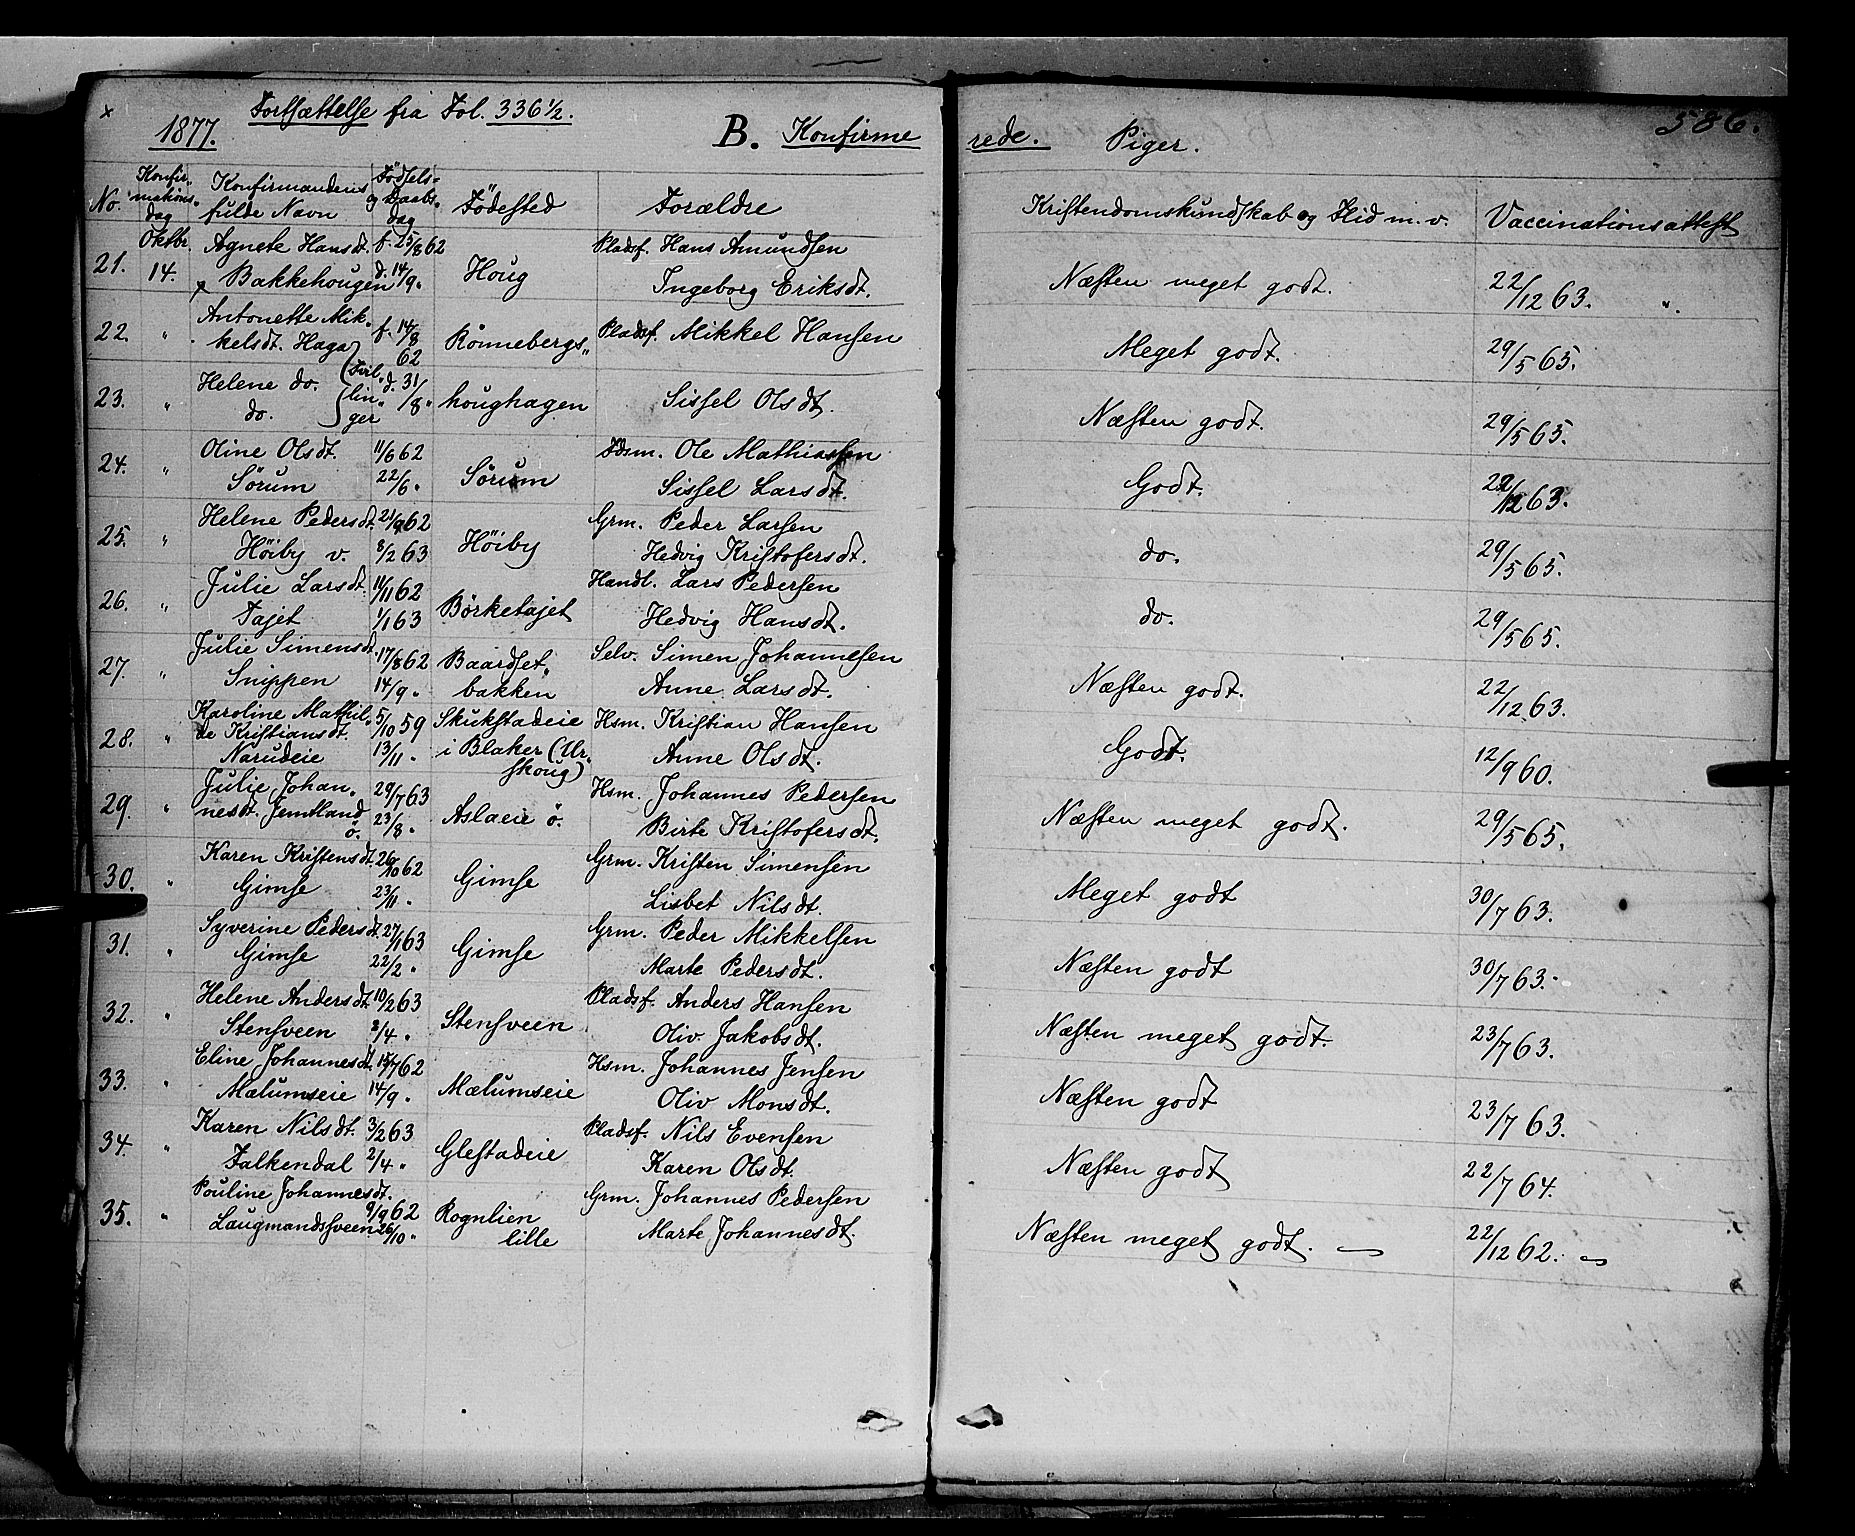 Fortsættelse fra Fol. 336 1/2.
586.
1877. B. Konfirmerede. Piger.
No. Konfirmations-dag Konfirmandens fulde Navn Fødsels- og Daabs-dag Födested Forældre Kristendomskundskab og Flid m. v. Vaccinationsattest
Oktbr. Agnete Hansdt. f. 25/8 62 Pladsf. Hans Amundsen
21. 14. Bakkehougen d. 14/9 " Houg Ingeborg Eriksdt. Næsten meget godt. 22/12 63. "
Antonette Mik-
22. " kelsdt. Haga f. 14/8 62 Rönnebergs" Pladsf. Mikkel Hansen Meget godt. 29/5 65.
Helene do. (Tvil- d. 31
23. " do. lin-ger /8 " houghagen Sissel Olsdt. Næsten godt. 29/5 65.
Oline Olsdt. 11/6 62 Hsm. Ole Mathiassen
24. " Sörum 22/6 " Sörum Sissel Larsdt. Godt. 22/12 63.
Helene Pedersdt. 21/9 62 Grm. Peder Larsen
25. " Höiby v. 8/2 63 Höiby Hedvig Kristofersdt. do. 29/5 65.
Julie Larsdt. 11/11 62 Handl. Lars Pedersen
26. " Tajet 1/1 63 Börketajet Hedvig Hansdt. do. 29/5 65.
Julie Simensdt. 17/8 62 Baardset" Selv. Simen Johannesen
27. " Snippen 14/9 " bakken Anne Larsdt. Næsten godt. 22/12 63.
Karoline Mathil- 5/10 59 Skukstadeie Hsm. Kristian Hansen
28. " de Kristiansdt. i Blaker (Ur- Godt. 12/9 60.
Narudeie 13/11 " skoug) Anne Olsdt.
Julie Johan- 29/7 63 Hsm. Johannes Pedersen
29. " nesdt. Jemtland ö. 23/8 " Aslaeie ö. Birte Kristofersdt. Næsten meget godt. 29/5 65.
Karen Kristensdt. 26/10 62 Grm. Kristen Simensen
30. " Gimse 23/11 " Gimse Lisbet Nilsdt. Meget godt 30/7 63.
Syverine Pedersdt. 27/1 63 Grm. Peder Mikkelsen
31. " Gimse 22/2 " Gimse Marte Pedersdt. Næsten godt 30/7 63.
Helene Andersdt. 10/2 63 Pladsf. Anders Hansen
32. " Stensveen 8/4 " Stensveen Oliv. Jakobsdt. Næsten meget godt. 23/7 63.
Eline Johannesdt. 15/7 62 Hsm. Johannes Jensen
33. " Mælumseie 14/9 " Mælumseie Oliv Monsdt. Næsten godt 23/7 63.
Karen Nilsdt. 3/2 63 Pladsf. Nils Evensen
34. " Falkendal 2/4 " Glestadeie Karen Olsdt. Næsten godt 22/7 64.
Pouline Johannesdt. 9/9 62 Rognlien Grm. Johannes Pedersen
35. " Laugmandssveen 26/10 " lille Marte Johannesdt. Næsten meget godt. 22/12 62.